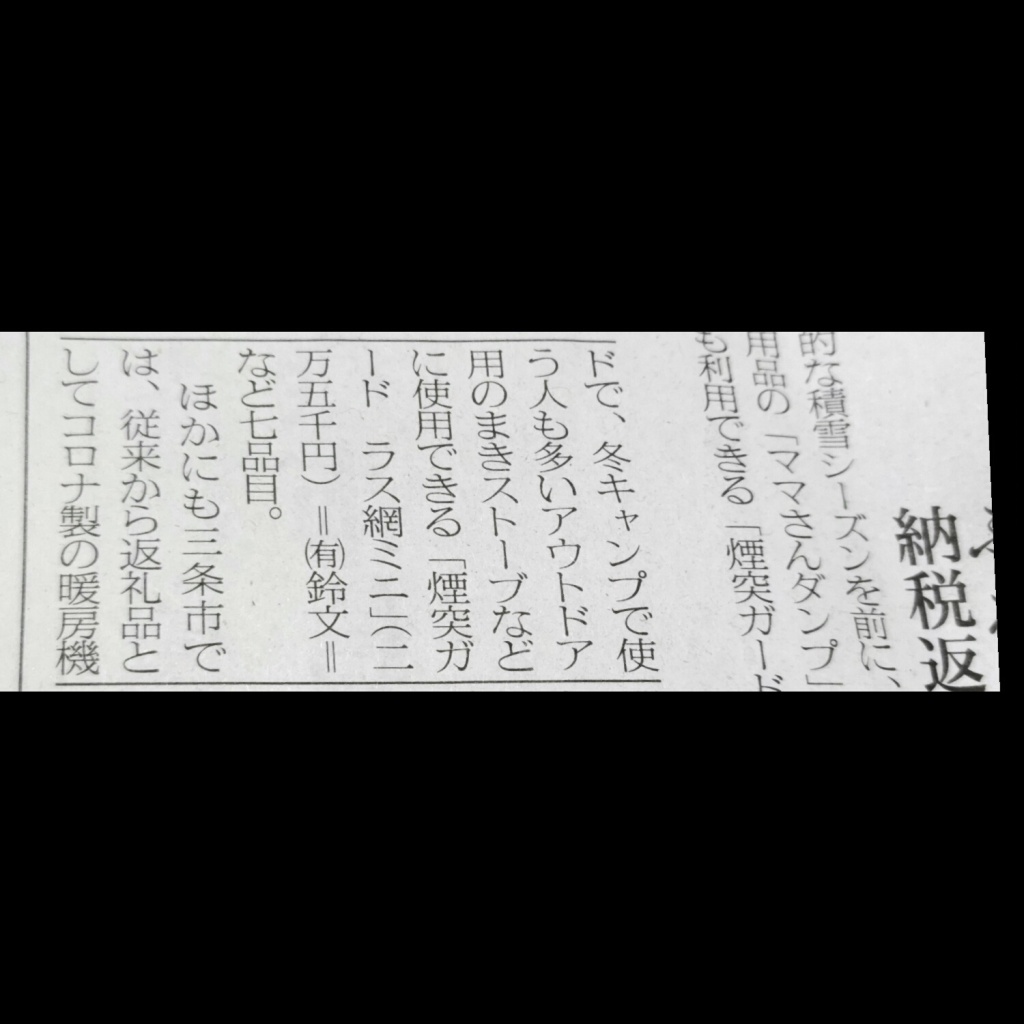 納税返
的な積雪シーズンを前に、
用品の「ママさんダンプ」
も利用できる「煙突ガード
ドで、冬キャンプで使
う人も多いアウトドア
用のまきストーブなど
に使用できる「煙突ガ
ード　ラス網ミニ」（二
万五千円）＝㈲鈴文＝
など七品目。
ほかにも三条市で
は、従来から返礼品と
してコロナ製の暖房機